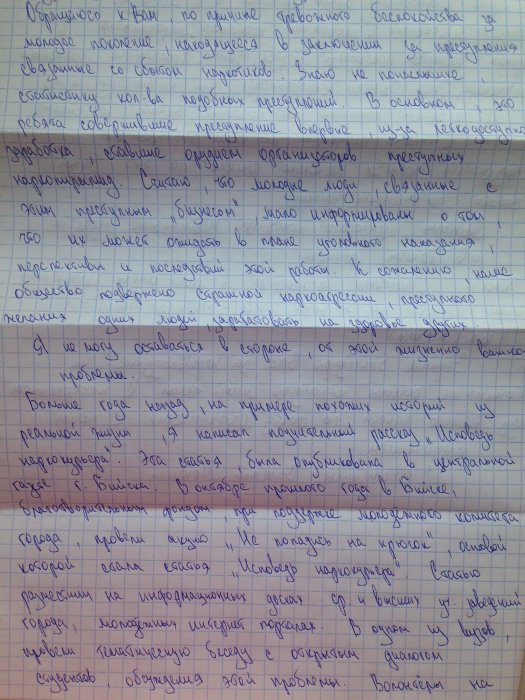 Обращаюсь к Вам, по причине тревожного беспокойства за
молодое поколение, находящееся в заключении за преступления
связанные со сбытом наркотиков. Знаю не понаслышке,
статистику кол-ва подобных преступлений. В основном, это
ребята совершившие преступление впервые, из-за легкодоступного
заработка, ставшие орудием организаторов преступных
наркопирамид. Считаю, что молодые люди, связанные с
этим преступным „бизнесом", мало информированы о том,
что их может ожидать в плане уголовного наказания,
перспективы и последствий этой работы. К сожалению, наше
общество подвержено страшной наркоагрессии, преступного
желания одних людей, зарабатывать на здоровье других.
Я не могу оставаться в стороне, от этой жизненно важной
проблемы.
Больше года назад, на примере похожих историй из
реальной жизни, я написал поучительный рассказ „Исповедь
наркокурьера". Эта статья, была опубликована в центральной
газете г. Бийска. В октябре прошлого года в Бийске,
благотворительным фондом, при поддержке молодежного комитета
города, провели акцию „Не попадись на крючок", основой
которой стала статья „Исповедь наркокурьера". Статью
разместили на информационных досках ср. и высших уч. заведений
города, молодежных интернет порталах. В одном из вузов,
провели тематическую беседу с открытым диалогом
студентов, обсуждения этой проблемы. Волонтёры на